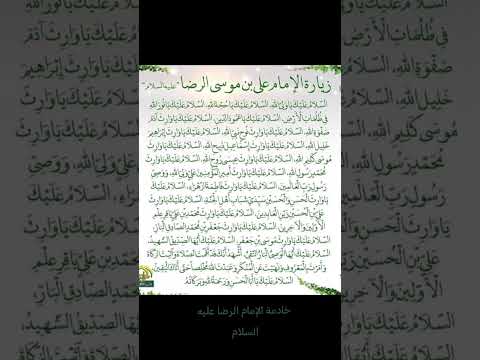 زيارة الإمام علي بن موسى الرضا "عليه السلام"
السَّلامُ عَلَيْكَ يَا وَلِيَّ اللهِ، السَّلامُ عَلَيْكَ يَا حُجَّةَ اللهِ، السَّلامُ عَلَيْكَ يَا نُورَ اللهِ
في ظُلُمَاتِ الأَرْضِ، السَّلامُ عَلَيْكَ يَا عَمُودَ الدِّينِ، السَّلامُ عَلَيْكَ يَا وَارِثَ آدَمَ
صَفْوَةِ اللهِ، السَّلامُ عَلَيْكَ يَا وَارِثَ نُوحٍ نَبِيِّ اللهِ، السَّلامُ عَلَيْكَ يَا وَارِثَ إِبْرَاهِيمَ
خَلِيلِ اللهِ، السَّلامُ عَلَيْكَ يَا وَارِثَ إِسْمَاعِيلَ ذَبِيحِ اللهِ، السَّلامُ عَلَيْكَ يَا وَارِثَ
مُوسَى كَلِيمِ اللهِ، السَّلامُ عَلَيْكَ يَا وَارِثَ عِيسَى رُوحِ اللهِ، السَّلامُ عَلَيْكَ يَا وَارِثَ
مُحَمَّدٍ رَسُولِ اللهِ، السَّلامُ عَلَيْكَ يَا وَارِثَ أَمِيرِ المُؤْمِنِينَ عَلِيٍّ وَلِيِّ اللهِ، وَوَصِيِّ
رَسُولِ رَبِّ العَالَمِينَ، السَّلامُ عَلَيْكَ يَا وَارِثَ فَاطِمَةَ الزَّهْرَاءِ، السَّلامُ عَلَيْكَ
يَا وَارِثَ الحَسَنِ وَالحُسَيْنِ سَيِّدَيْ شَبَابِ أَهْلِ الجَنَّةِ، السَّلامُ عَلَيْكَ يَا وَارِثَ
عَلِيِّ بْنِ الحُسَيْنِ زَيْنِ العَابِدِينَ، السَّلامُ عَلَيْكَ يَا وَارِثَ مُحَمَّدِ بْنِ عَلِيٍّ بَاقِرِ عِلْمِ
الأَوَّلِينَ وَالآخِرِينَ، السَّلامُ عَلَيْكَ يَا وَارِثَ جَعْفَرِ بْنِ مُحَمَّدٍ الصَّادِقِ البَارِّ،
السَّلامُ عَلَيْكَ يَا وَارِثَ مُوسَى بْنِ جَعْفَرٍ، السَّلامُ عَلَيْكَ أَيُّهَا الصِّدِّيقُ الشَّهِيدُ،
السَّلامُ عَلَيْكَ أَيُّهَا الوَصِيُّ البَارُّ التَّقِيُّ، أَشْهَدُ أَنَّكَ قَدْ أَقَمْتَ الصَّلاةَ وَآتَيْتَ الزَّكَاةَ
وَأَمَرْتَ بِالمَعْرُوفِ وَنَهَيْتَ عَنِ المُنْكَرِ وَعَبَدْتَ اللهَ مُخْلِصاً حَتَّى أَتَاكَ اليَقِينُ
السَّلامُ عَلَيْكَ يَا أَبَا الحَسَنِ وَرَحْمَةُ اللهِ وَبَرَكَاتُهُ
خادمة الإمام الرضا عليه
السلام